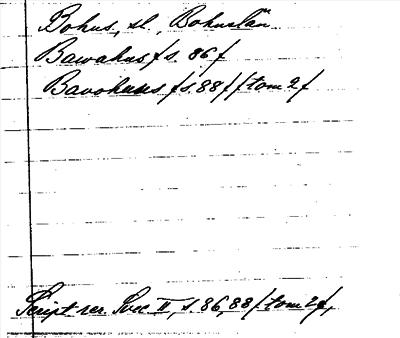 Bohus, sl., Bohuslän.
Bawahus /s. 86/
Bavohuus /s. 88/ /tom 2/
Script rer. Svec. II, s. 86, 88 /tom 2/,